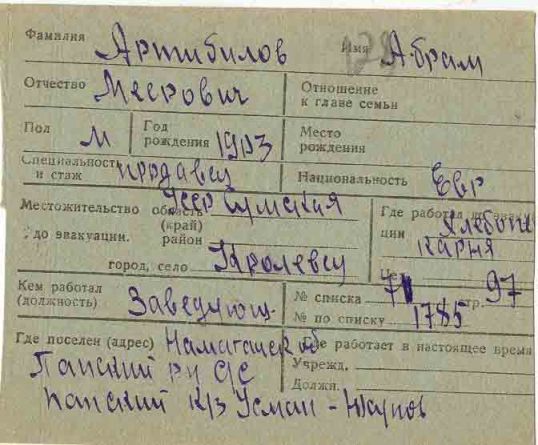 Фамилия Артибилов Имя Абрам
Отчество Меерович Отношение к главе семьи
Пол М Год рождения 1903 Место рождения
Специальность и стаж продавец Национальность Евр
Местожительство до эвакуации. область (край) Усср Сумская
район
город, село Кролевец
Где работал до эвакуации Хлебопекарня
Кем работал (должность) Заведующ.
№ списка 71 стр. 97
№ по списку 1785
Где поселен (адрес) Наманганск об
Где работает в настоящее время
Папский рн
Учрежд.
Папский к/з Усман-Юсупов
Должн.